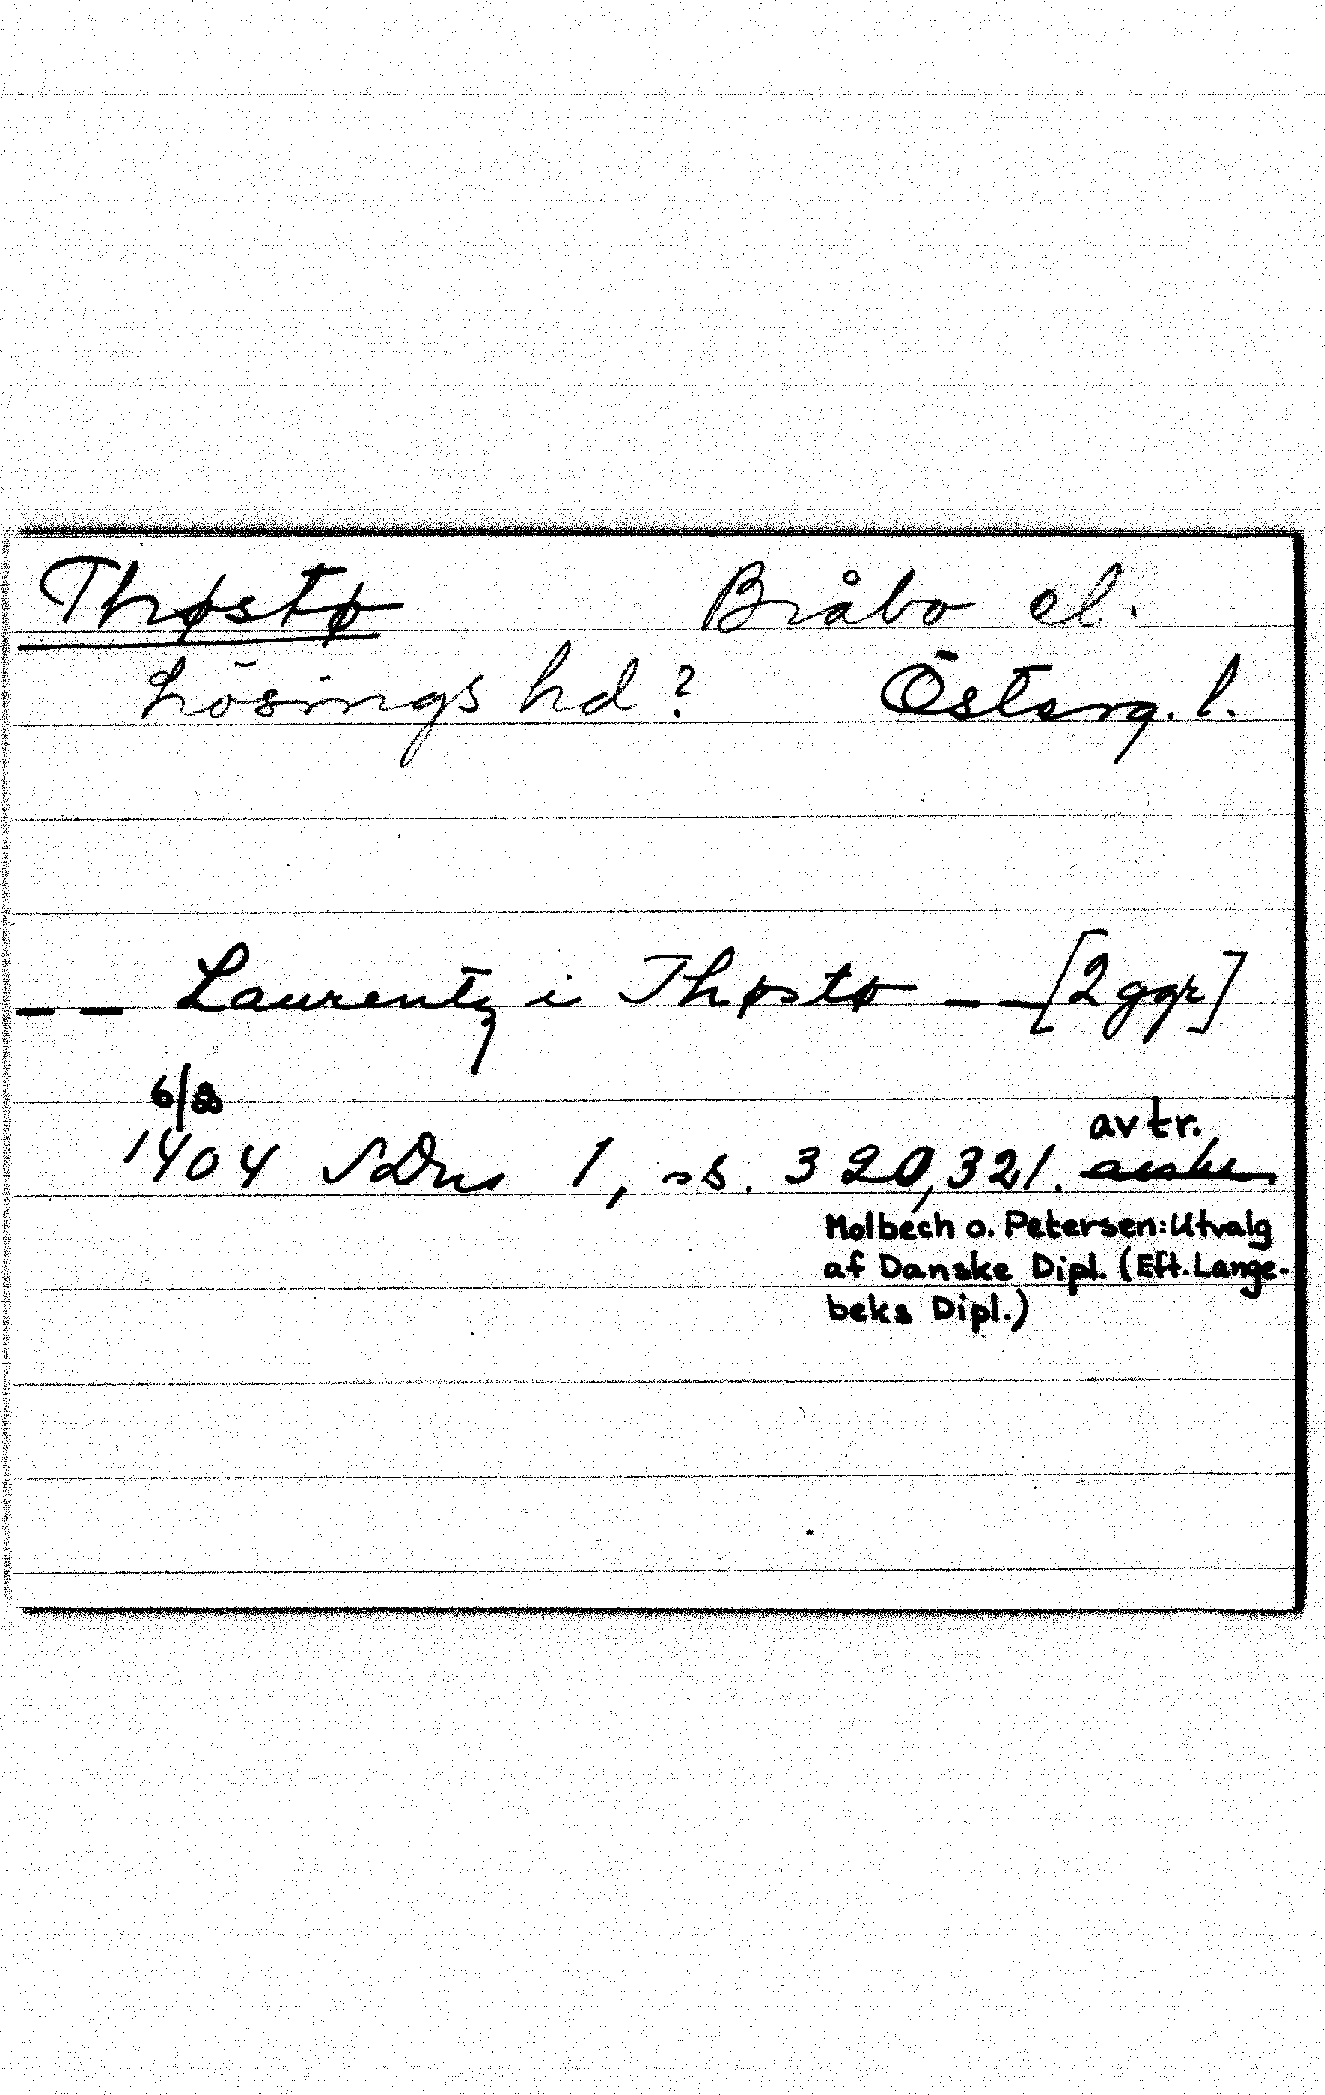 Thøstø Bråbo el.
Lösings hd? Österg. l.
– – Laurentz i Thøstø – – [2 ggr]
6/8
1404 SDns 1, ss. 320, 321. avtr.
Molbech o. Petersen: Utvalg
af Danske Dipl. (Eft. Lange-
beks Dipl.)